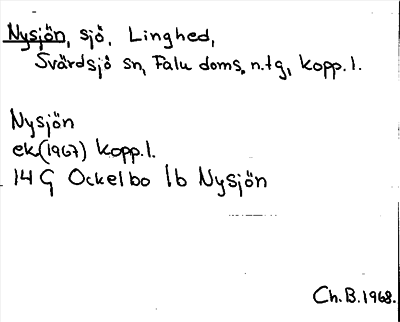 Nysjön, sjö, Linghed,
Svärdsjö sn, Falu doms. n.tg, kopp.l.
Nysjön
ek.(1967) kopp.l.
14 G Ockelbo 1b Nysjön
Ch.B.1968.